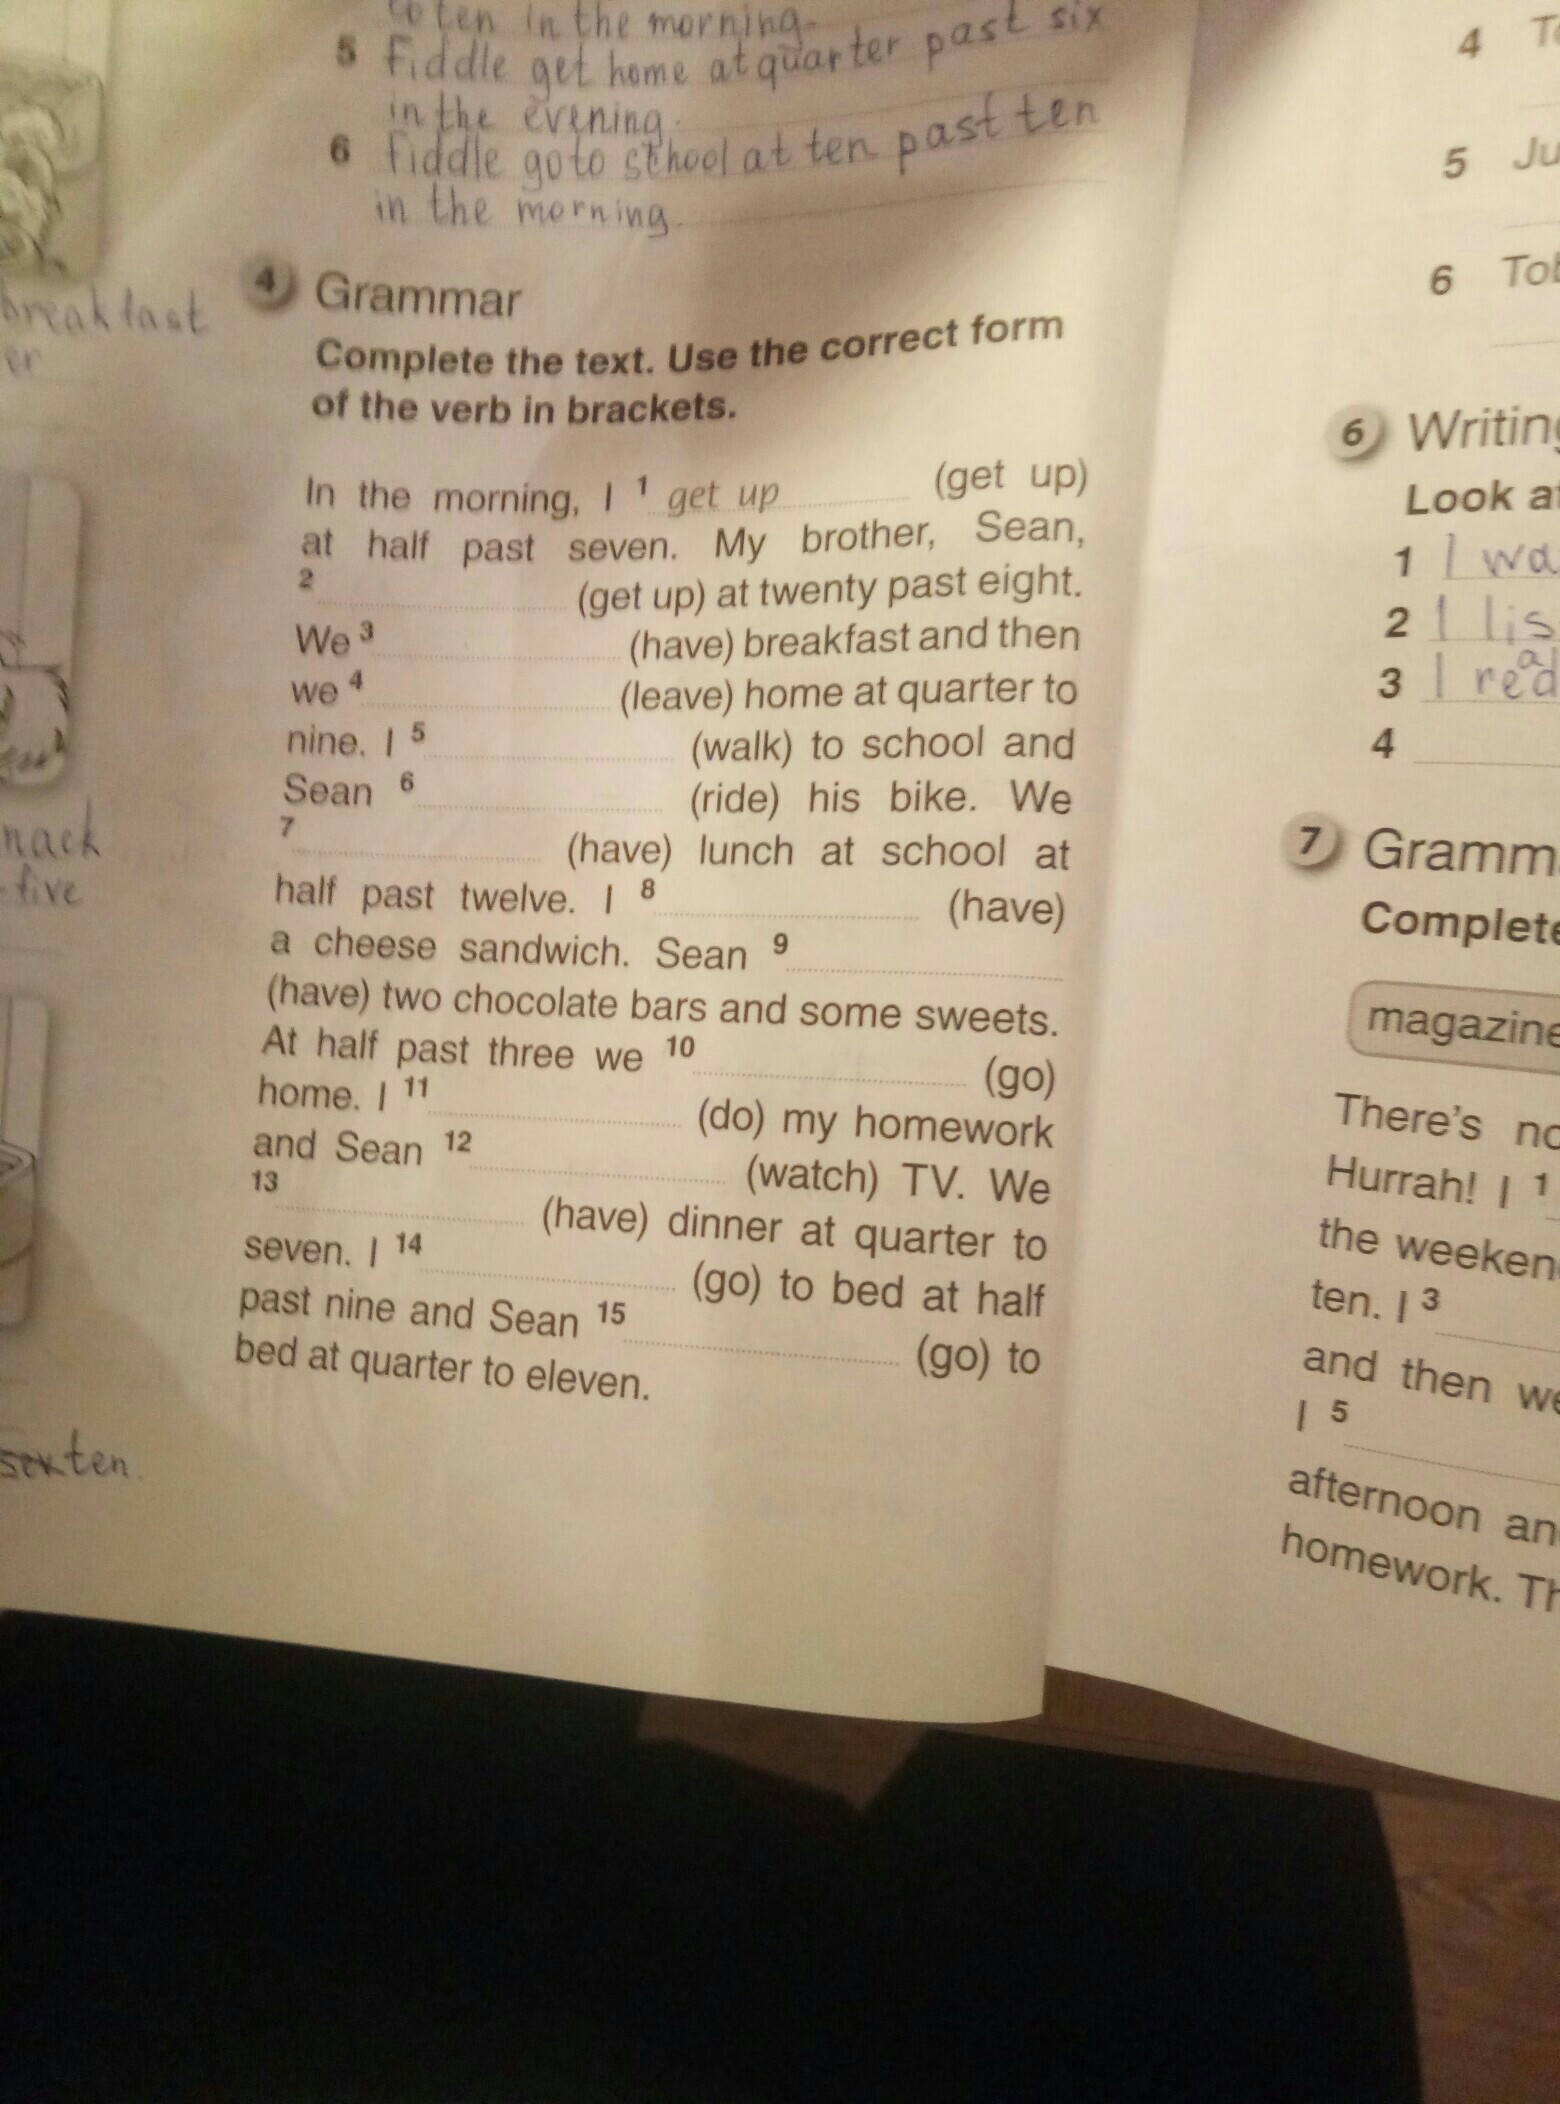 to ten in the morning.
5 Fiddle get home at quarter past six
in the evening.
6 Fiddle go to school at ten past ten
in the morning.
breakfast
er
nack
-five
ten.
4 Grammar
Complete the text. Use the correct form
of the verb in brackets.
In the morning, I 1 get up (get up)
at half past seven. My brother, Sean,
2 (get up) at twenty past eight.
We 3 (have) breakfast and then
we 4 (leave) home at quarter to
nine. I 5 (walk) to school and
Sean 6 (ride) his bike. We
7 (have) lunch at school at
half past twelve. I 8 (have)
a cheese sandwich. Sean 9
(have) two chocolate bars and some sweets.
At half past three we 10 (go)
home. I 11 (do) my homework
and Sean 12 (watch) TV. We
13 (have) dinner at quarter to
seven. I 14 (go) to bed at half
past nine and Sean 15 (go) to
bed at quarter to eleven.
4 To
5 Ju
6 Tob
6 Writing
Look at
1 I wa
2 I lis
3 I read
4
7 Gramma
Complete
magazine
There's no
Hurrah! I 1
the weeken
ten. I 3
and then we
I 5
afternoon an
homework. Th